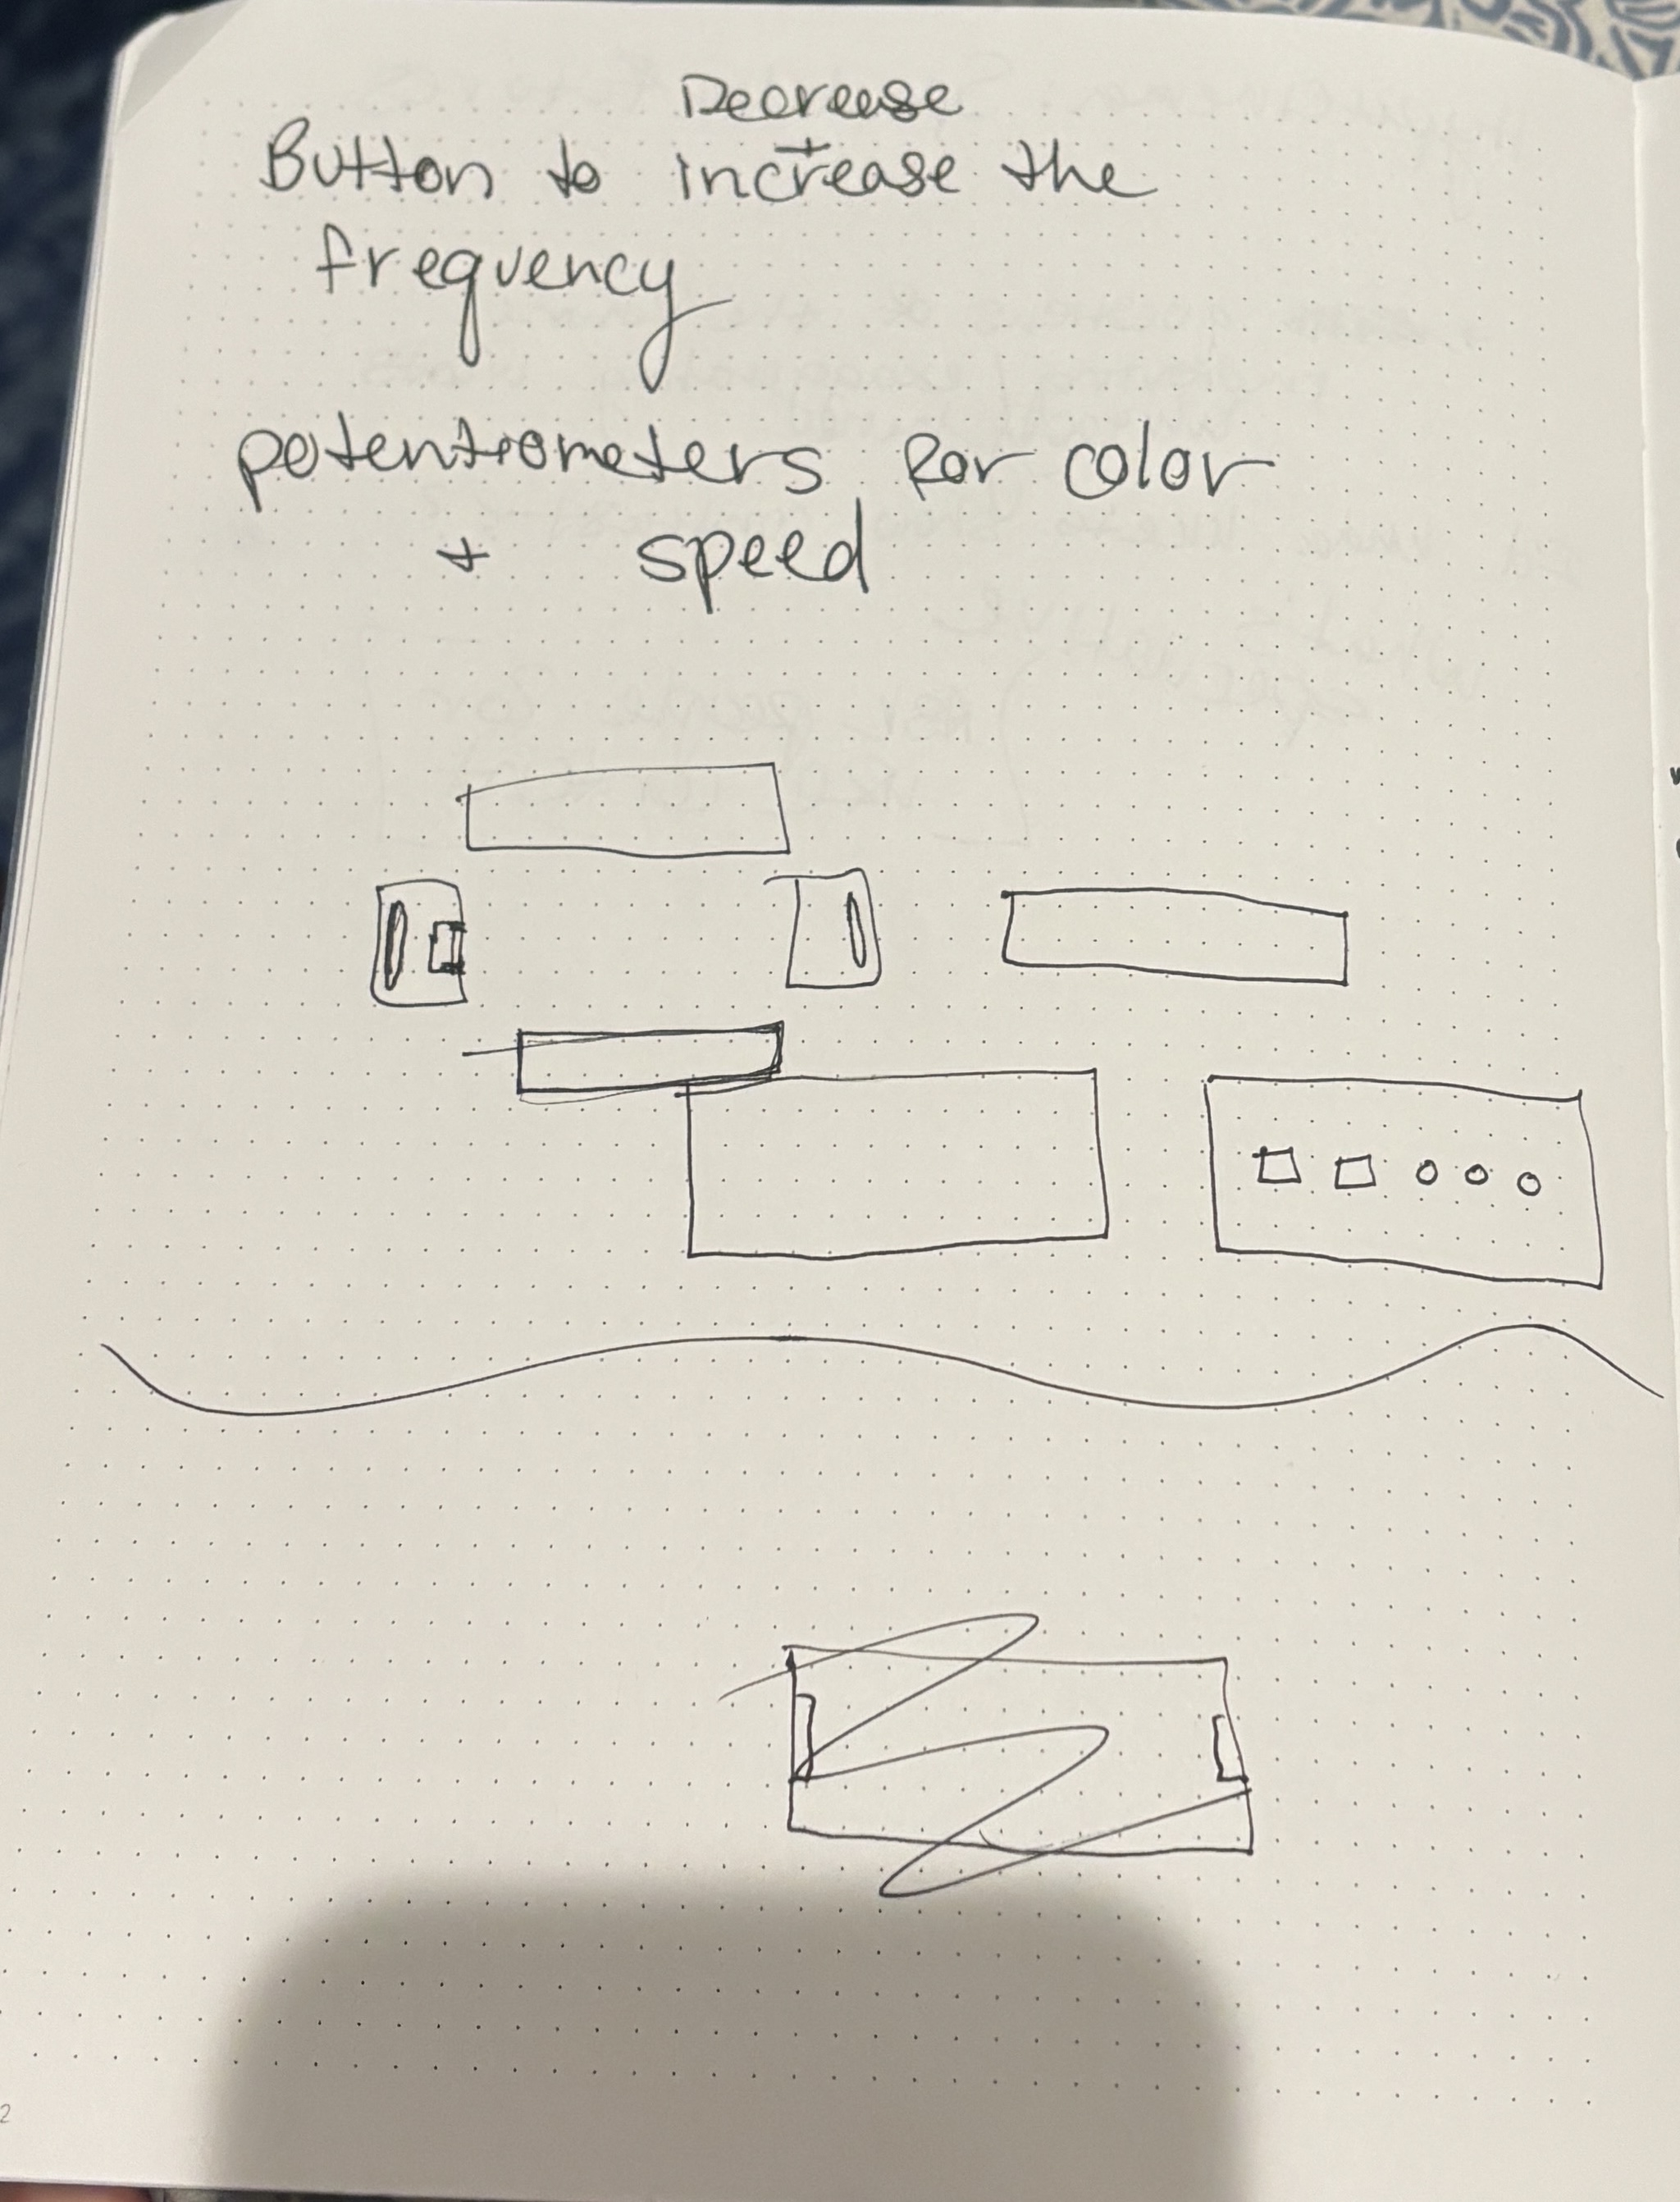 Decrease
+
Button to increase the
frequency
potentiometers for color
+ speed
2